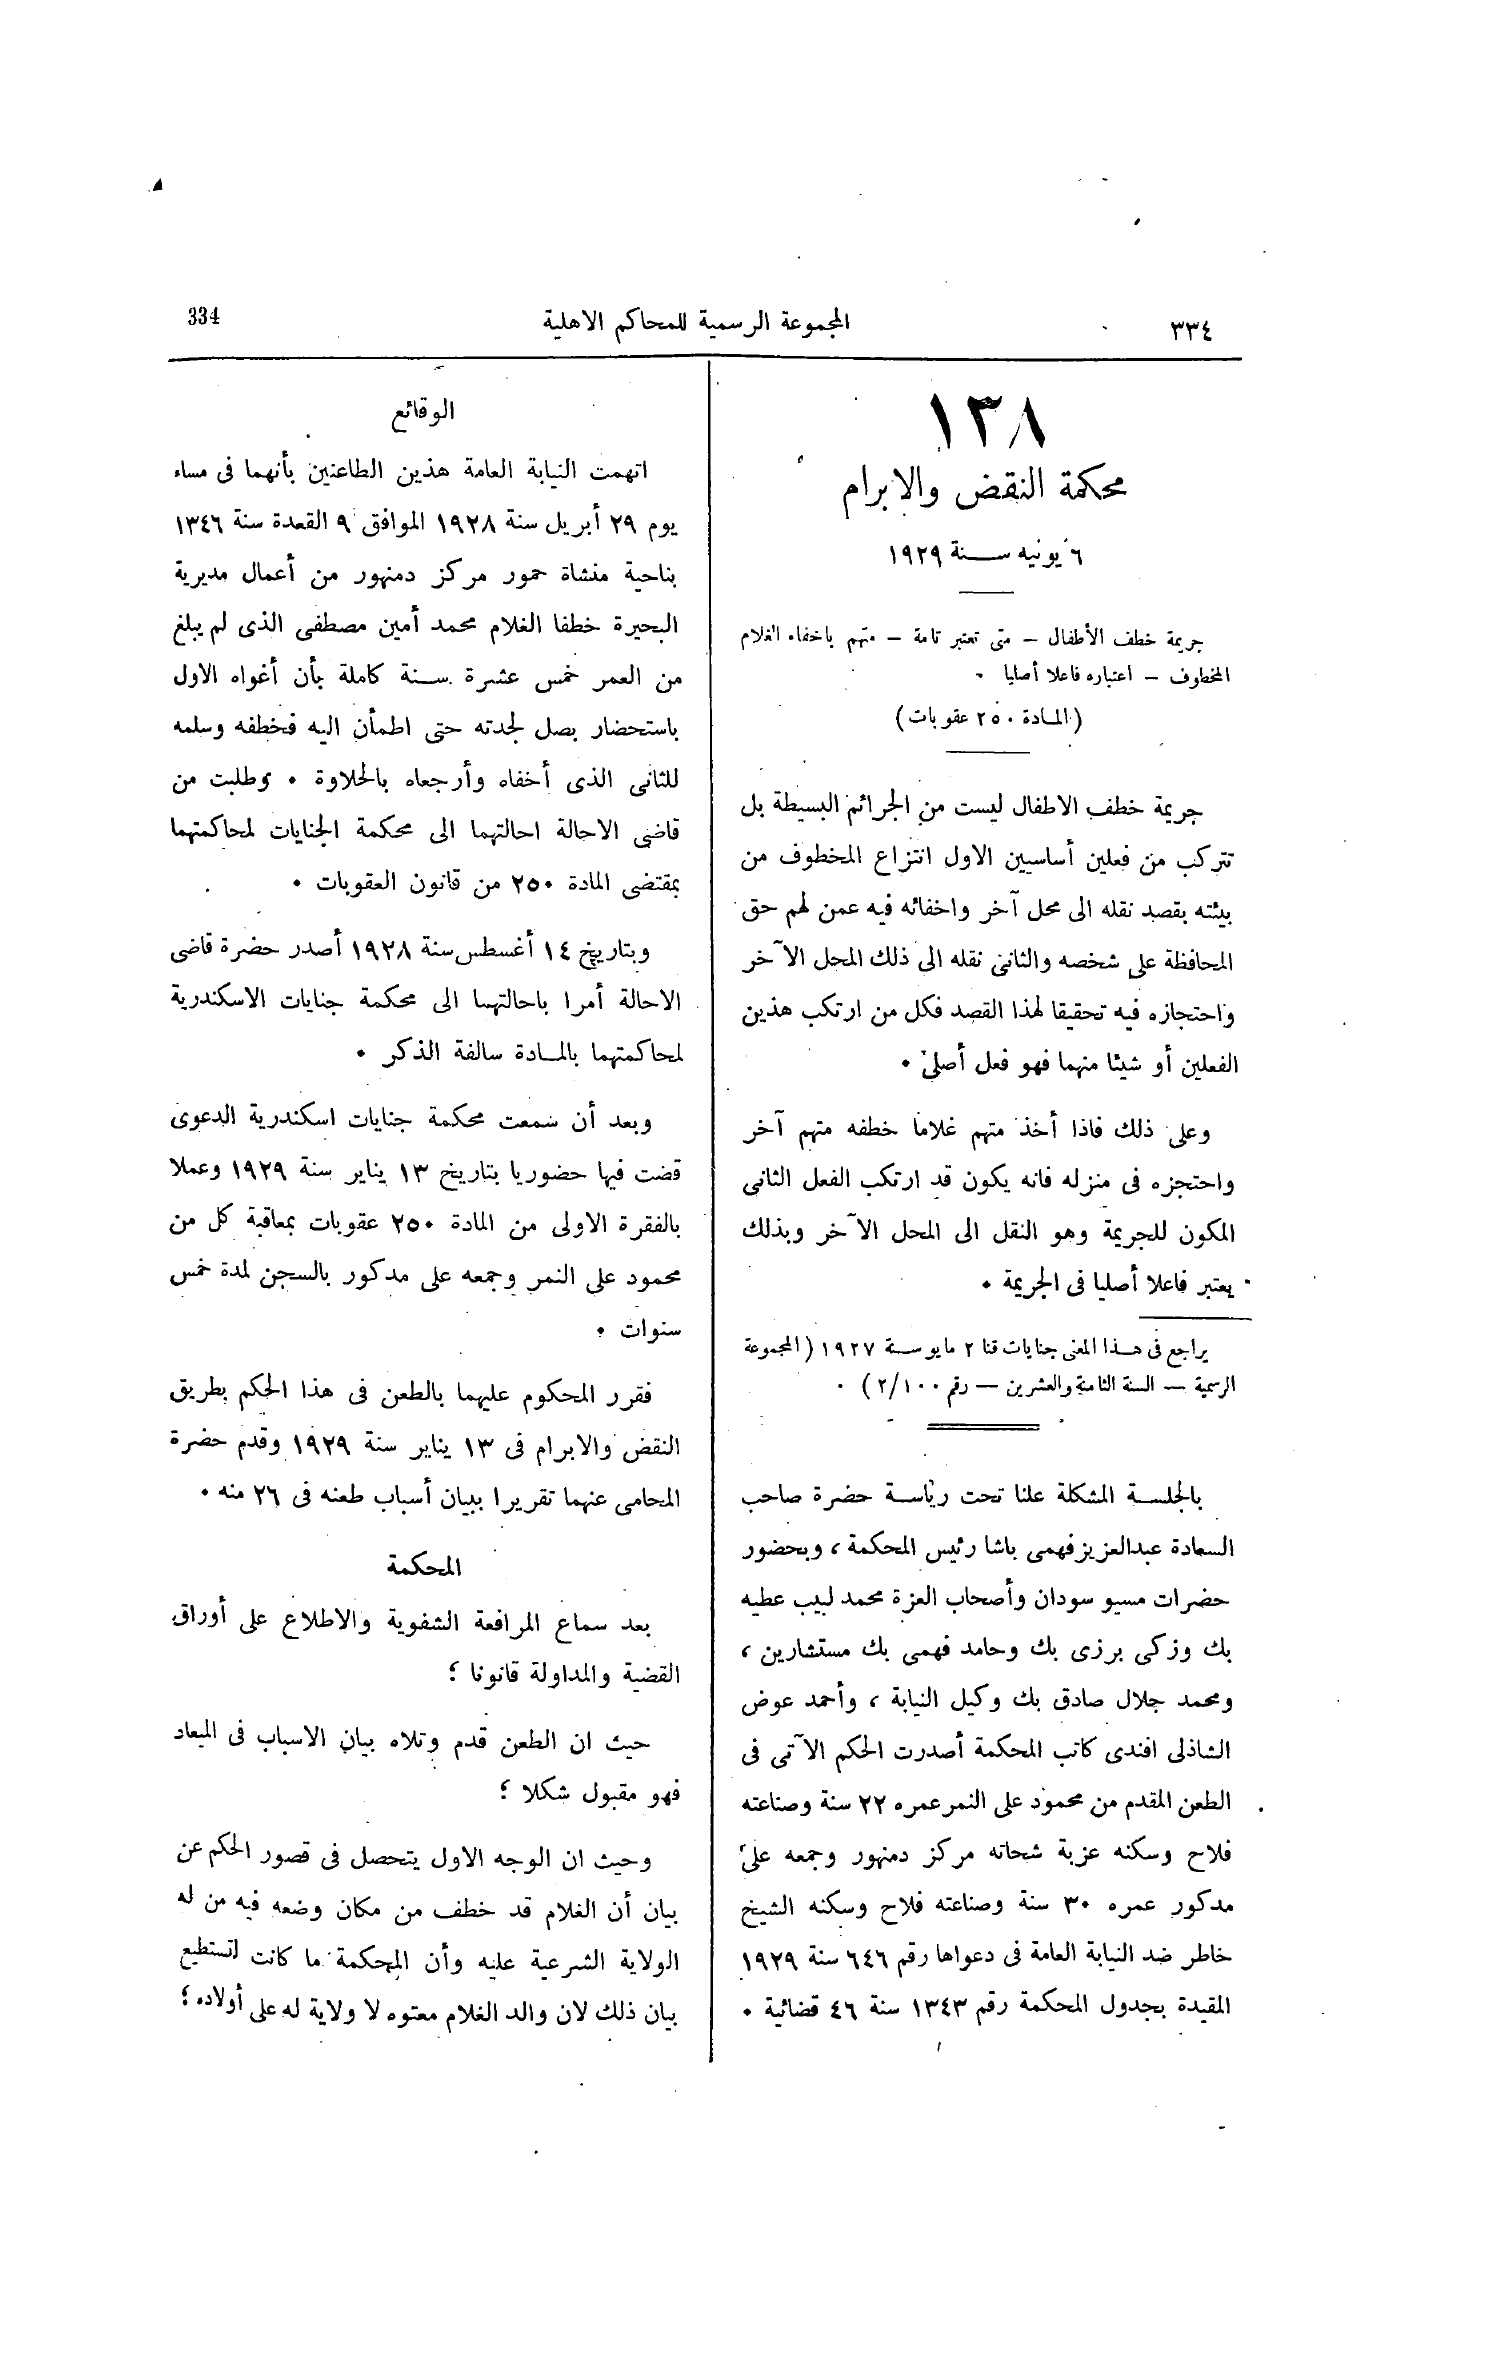 ٣٣٤
المجموعة الرسمية للمحاكم الاهلية
334
١٣٨
محكمة النقض والابرام
٦ يونيه ســنة ١٩٢٩
جريمة خطف الأطفال – متى تعتبر تامة – متهم باخفاء الغلام
المخطوف – اعتباره فاعلا أصليا ٠
(المـادة ٢٥٠ عقوبات)
جريمة خطف الاطفال ليست من الجرائم البسيطة بل
تتركب من فعلين أساسيين الاول انتزاع المخطوف من
بيئته بقصد نقله الى محل آخر واخفائه فيه عمن لهم حق
المحافظة على شخصه والثانى نقله الى ذلك المحل الآخر
واحتجازه فيه تحقيقا لهذا القصد فكل من ارتكب هذين
الفعلين أو شيئا منهما فهو فعل أصلى ٠
وعلى ذلك فاذا أخذ متهم غلاما خطفه متهم آخر
واحتجزه فى منزله فانه يكون قد ارتكب الفعل الثانى
المكون للجريمة وهو النقل الى المحل الآخر وبذلك
يعتبر فاعلا أصليا فى الجريمة ٠
يراجع فى هـذا المعنى جنايات قنا ٢ مايو سـنة ١٩٢٧ (المجموعة
الرسمية – السنة الثامنة والعشرين – رقم ٢/١٠٠) ٠
بالجلسـة المشكلة علنا تحت رياسـة حضرة صاحب
السعادة عبدالعزيز فهمى باشا رئيس المحكمة ، وبحضور
حضرات مسيو سودان وأصحاب العزة محمد لبيب عطيه
بك وزكى برزى بك وحامد فهمى بك مستشارين ،
ومحمد جلال صادق بك وكيل النيابة ، وأحمد عوض
الشاذلى افندى كاتب المحكمة أصدرت الحكم الآتى فى
الطعن المقدم من محمود على النمر عمره ٢٢ سنة وصناعته
فلاح وسكنه عزبة شحاته مركز دمنهور وجمعه على
مدكور عمره ٣٠ سنة وصناعته فلاح وسكنه الشيخ
خاطر ضد النيابة العامة فى دعواها رقم ٦٤٦ سنة ١٩٢٩
المقيدة بجدول المحكمة رقم ١٣٤٣ سنة ٤٦ قضائية ٠
الوقائع
اتهمت النيابة العامة هذين الطاعنين بأنهما فى مساء
يوم ٢٩ أبريل سنة ١٩٢٨ الموافق ٩ القعدة سنة ١٣٤٦
بناحية منشاة حمور مركز دمنهور من أعمال مديرية
البحيرة خطفا الغلام محمد أمين مصطفى الذى لم يبلغ
من العمر خمس عشرة سـنة كاملة بأن أغواه الاول
باستحضار بصل لجدته حتى اطمأن اليه فخطفه وسلمه
للثانى الذى أخفاه وأرجعاه بالحلاوة ٠ وطلبت من
قاضى الاحالة احالتهما الى محكمة الجنايات لمحاكمتهما
بمقتضى المادة ٢٥٠ من قانون العقوبات ٠
وبتاريخ ١٤ أغسطس سنة ١٩٢٨ أصدر حضرة قاضى
الاحالة أمرا باحالتهما الى محكمة جنايات الاسكندرية
لمحاكمتهما بالمـادة سالفة الذكر ٠
وبعد أن سمعت محكمة جنايات اسكندرية الدعوى
قضت فيها حضوريا بتاريخ ١٣ يناير سنة ١٩٢٩ وعملا
بالفقرة الاولى من المادة ٢٥٠ عقوبات بمعاقبة كل من
محمود على النمر وجمعه على مدكور بالسجن لمدة خمس
سنوات ٠
فقرر المحكوم عليهما بالطعن فى هذا الحكم بطريق
النقض والابرام فى ١٣ يناير سنة ١٩٢٩ وقدم حضرة
المحامى عنهما تقريرا ببيان أسباب طعنه فى ٢٦ منه ٠
المحكمة
بعد سماع المرافعة الشفوية والاطلاع على أوراق
القضية والمداولة قانونا ؛
حيث ان الطعن قدم وتلاه بيان الاسباب فى الميعاد
فهو مقبول شكلا ؛
وحيث ان الوجه الاول يتحصل فى قصور الحكم عن
بيان أن الغلام قد خطف من مكان وضعه فيه من له
الولاية الشرعية عليه وأن المحكمة ما كانت لتستطيع
بيان ذلك لان والد الغلام معتوه لا ولاية له على أولاده ؛